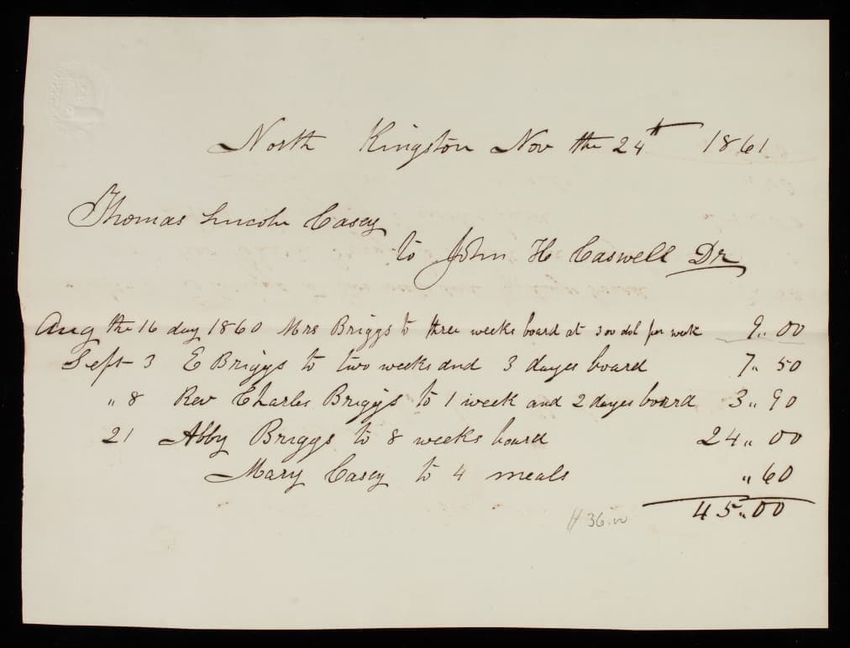 North Kingston Nov the 24th 1861
Thomas Lincoln Casey
to John H Caswell Dr
Aug the 16 day 1860 Mrs Briggs to three weeks board at 3 00 dol per week 9.. 00
Sept 3 E Briggs to two weeks and 3 dayes board 7.. 50
" 8 Rev Charles Briggs to 1 week and 2 dayes board 3.. 90
21 Abby Briggs to 8 weeks board 24.. 00
Mary Casey to 4 meals .. 60
45..00
36.00